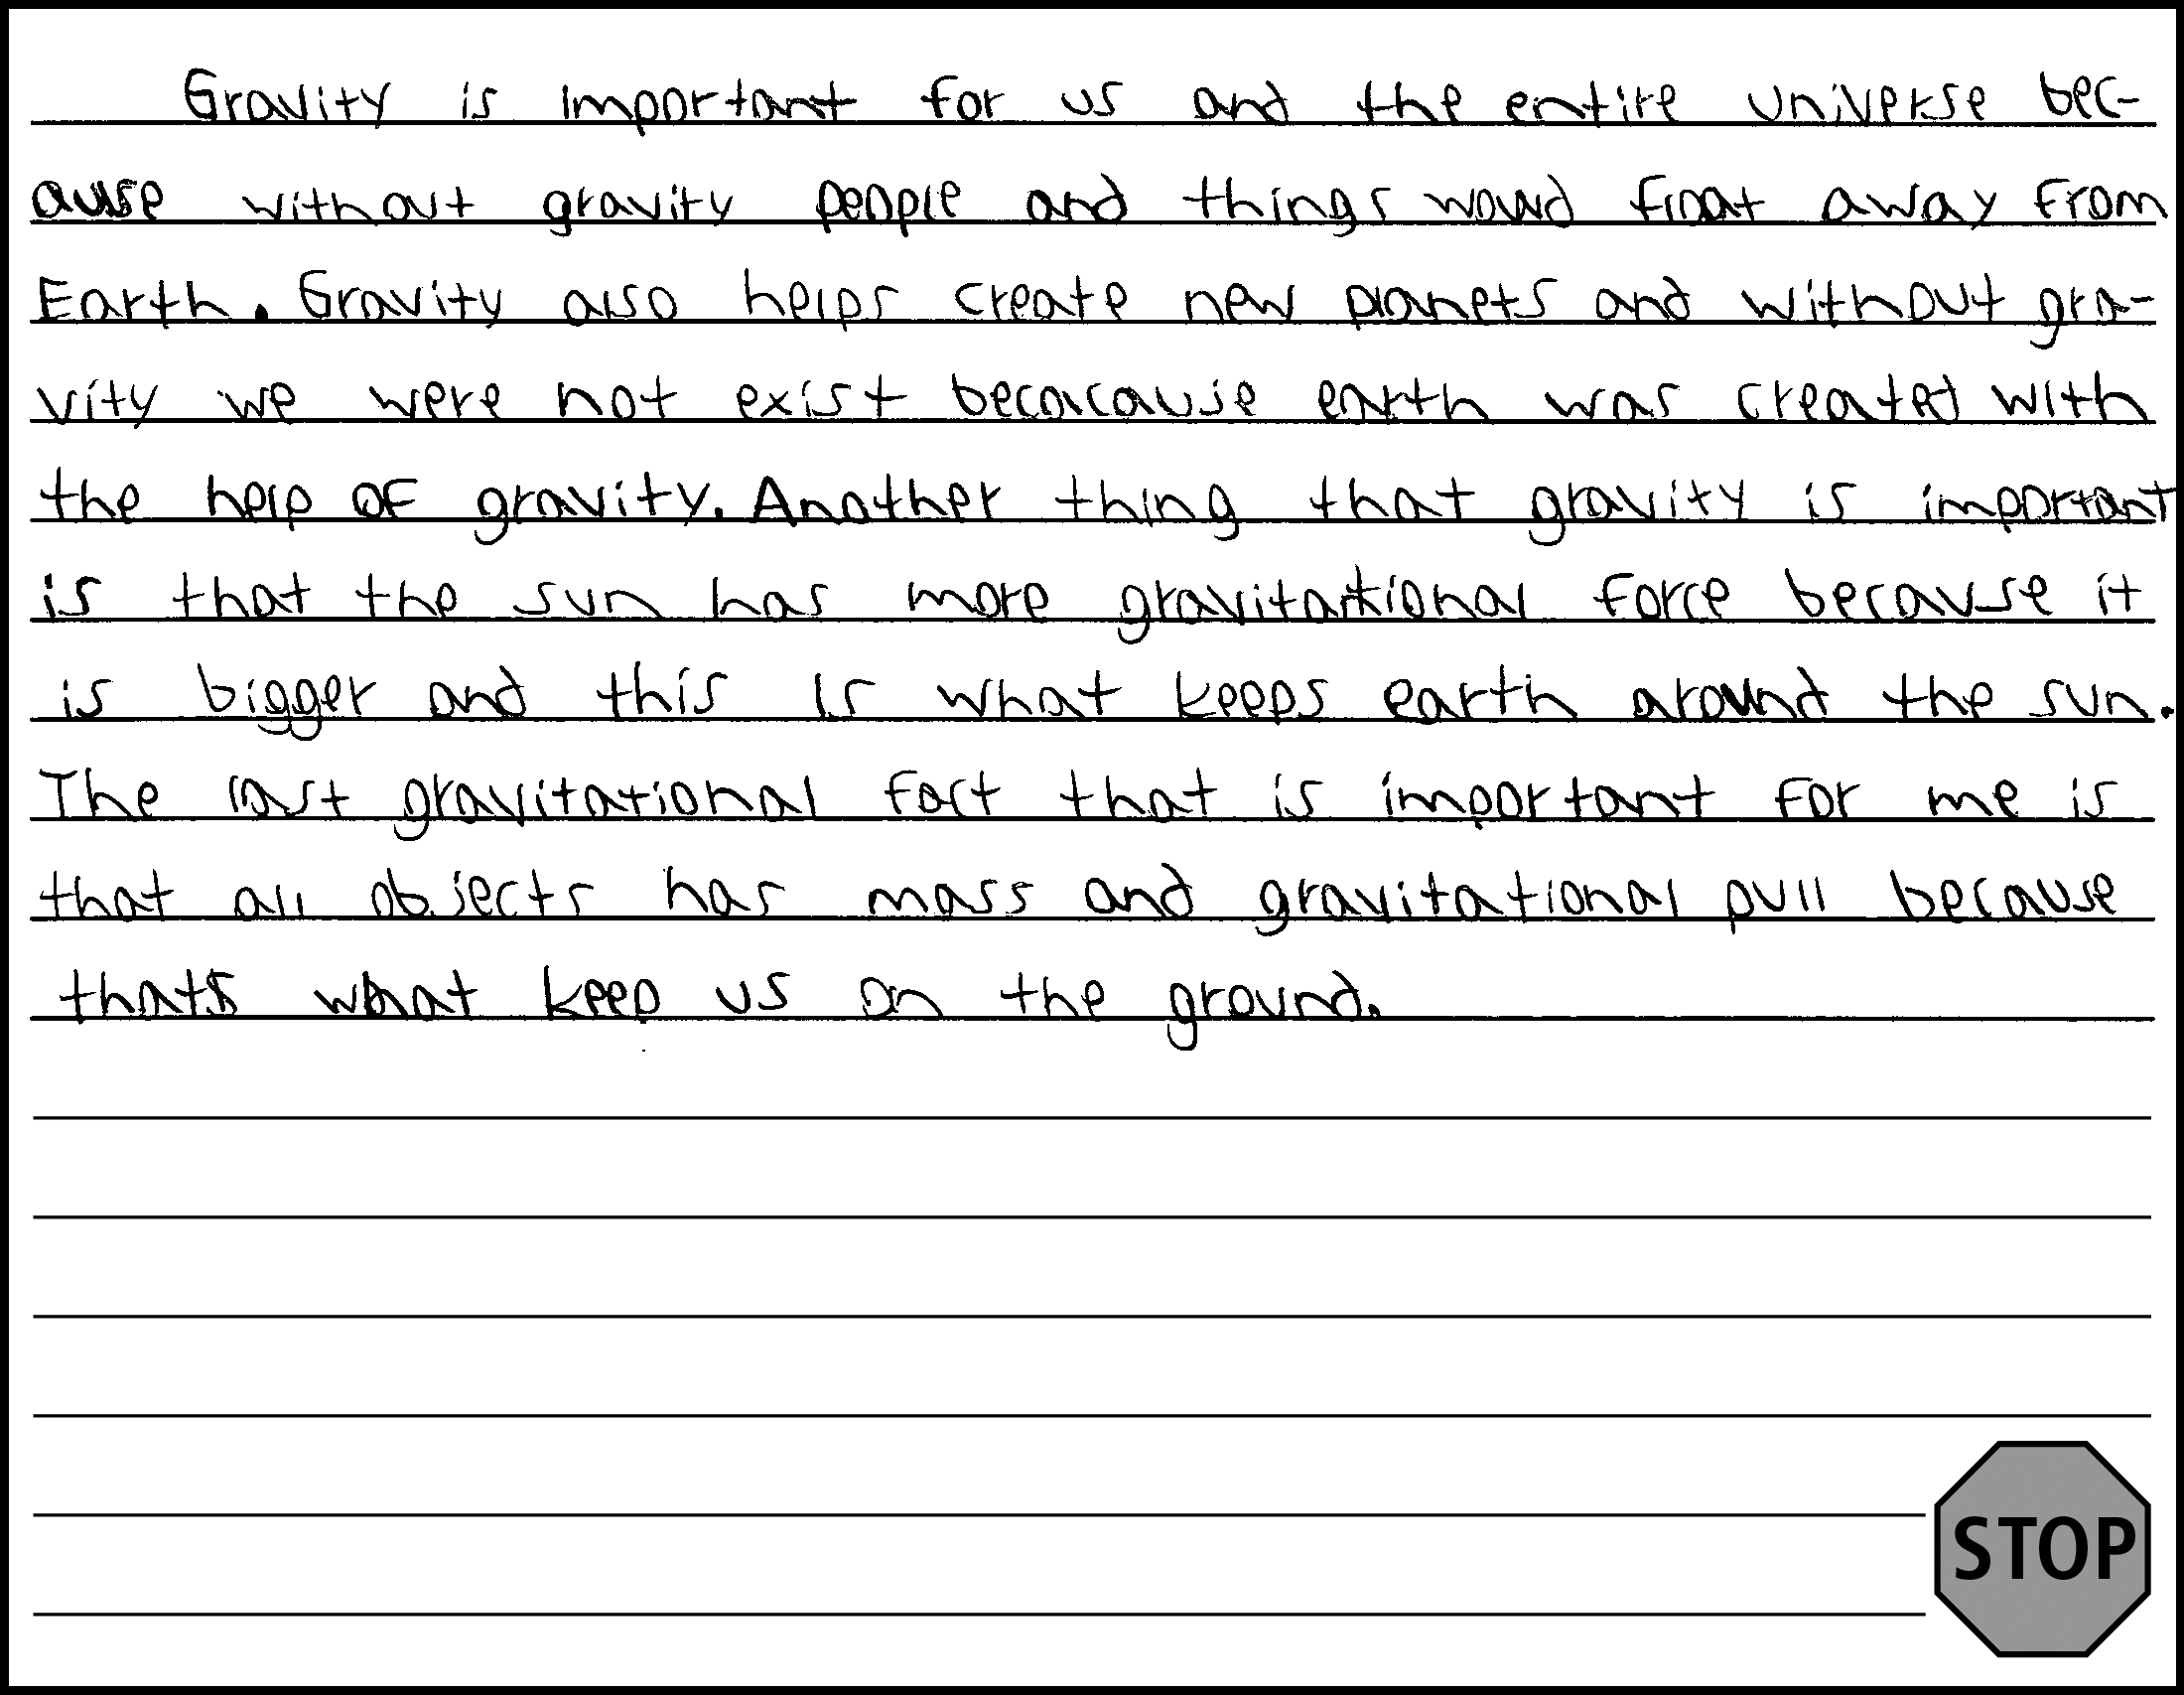 Gravity is important for us and the entire universe bec-
ause without gravity people and things would float away from
Earth. Gravity also helps create new planets and without gra-
vity we were not exist becacause earth was created with
the help of gravity. Another thing that gravity is important
is that the sun has more gravitational force because it
is bigger and this is what keeps earth around the sun.
The last gravitational fact that is important for me is
that all objects has mass and gravitational pull because
thats what keep us on the ground.
STOP